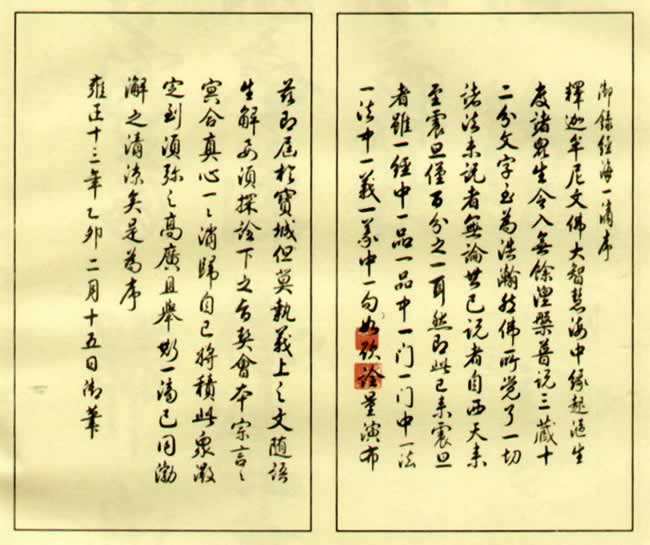 御錄經海一滴序
釋迦牟尼文佛大智慧海中緣起漚生
度諸眾生令入無餘涅槃普說三藏十
二分文字至為浩瀚然佛所覺了一切
諸法未說者無論其已說者自西天來
至震旦僅百分之一耳然即此已來震旦
者雖一經中一品一品中一门一门中一法
一法中一義一義中一句如欲詮量演布
茲即屆於寶城但莫執義上之文隨語
生解要須探詮下之旨契會本宗言〻
冥合真心一〻消歸自己將積此眾微
定到須弥之高廣且舉斯一滴已同渤
澥之清涼矣是為序
雍正十三年乙卯二月十五日御筆